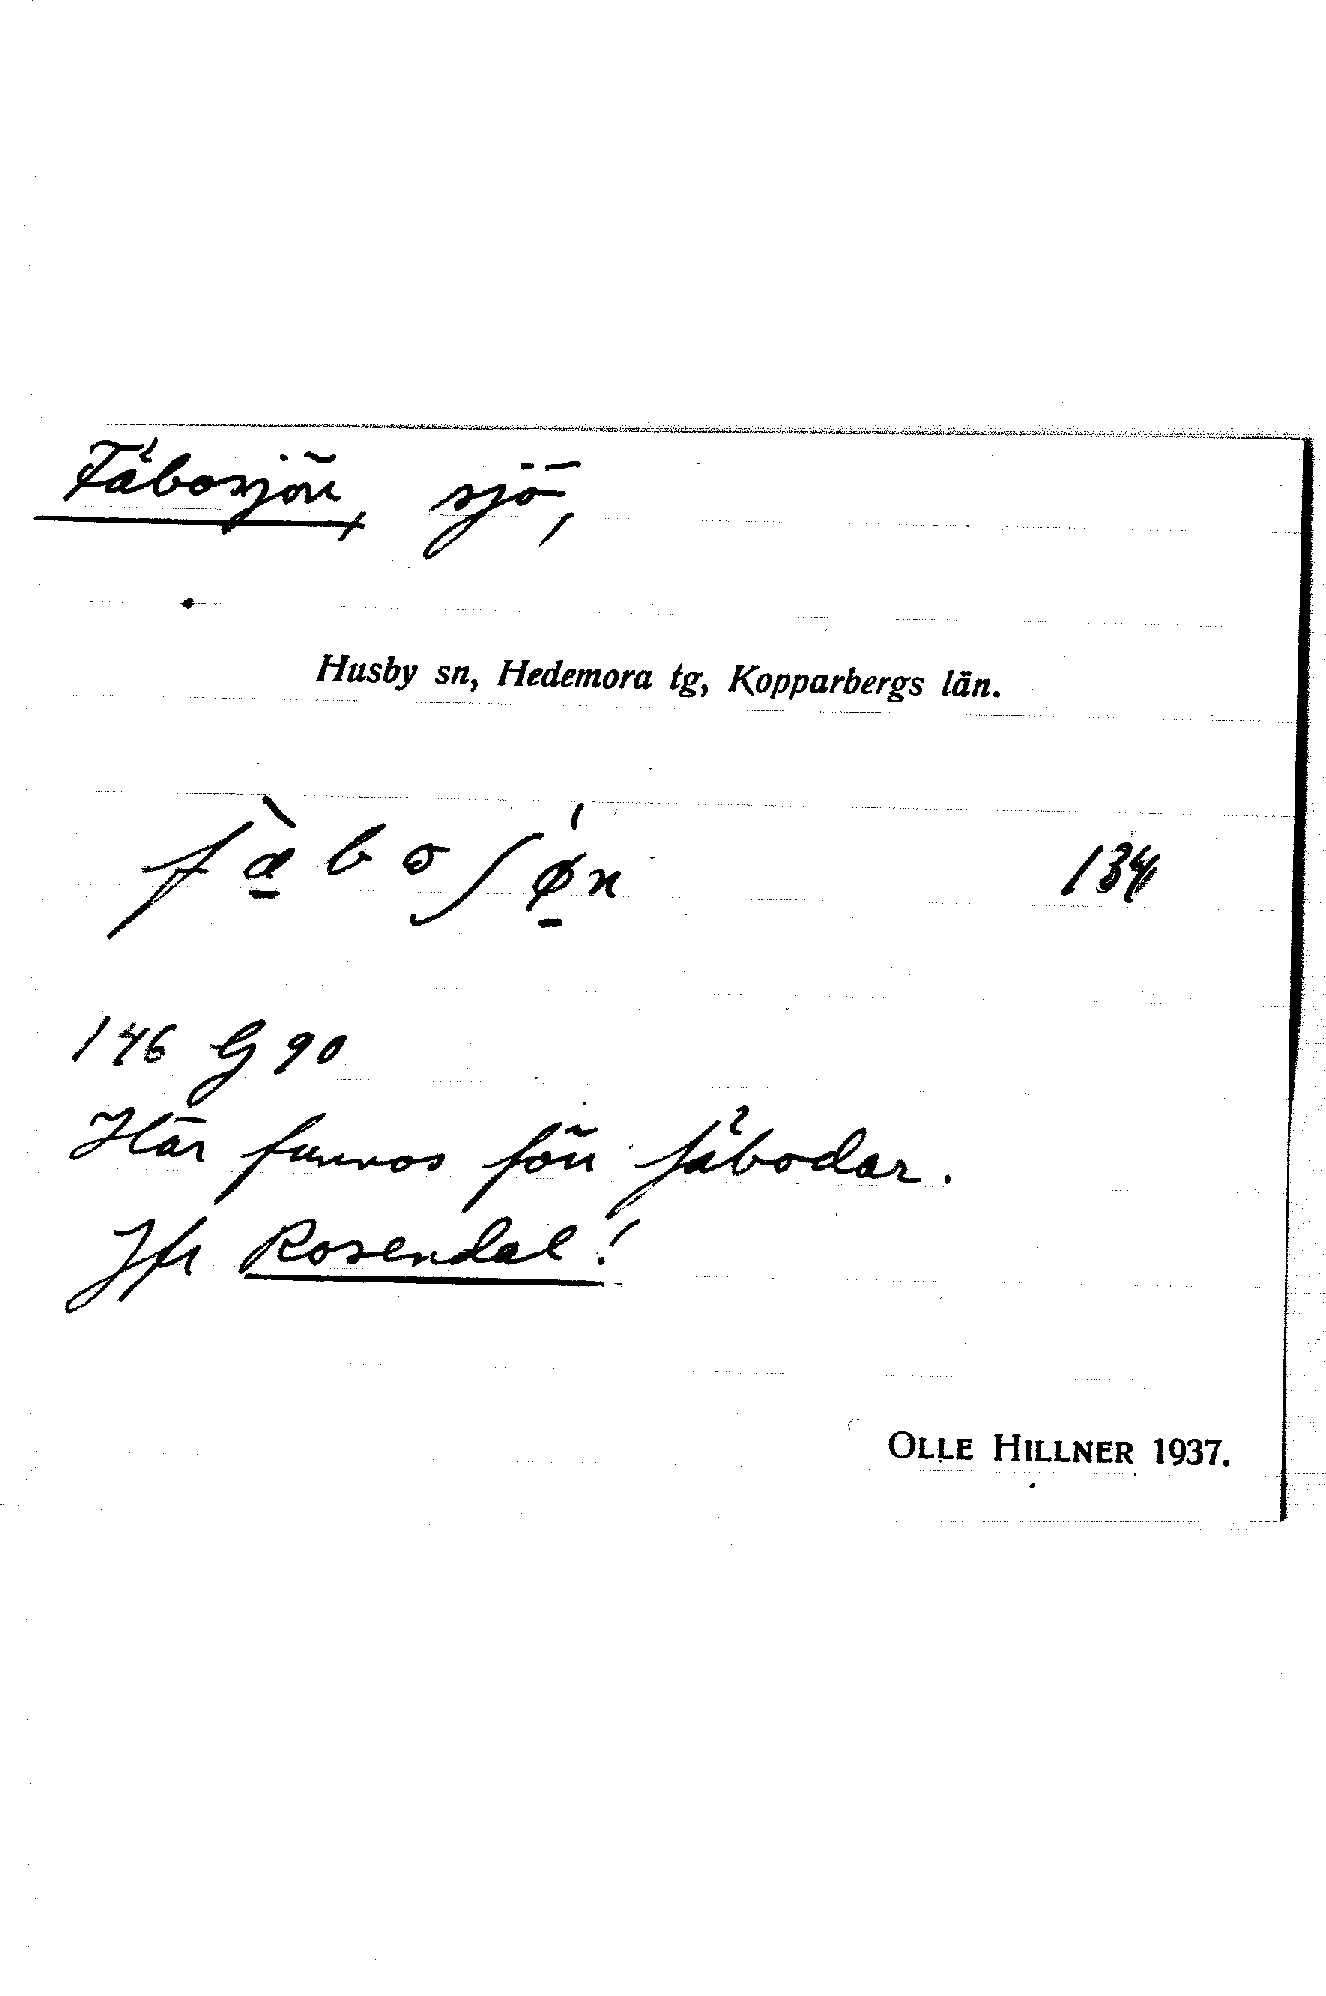 Fäbosjön, sjö,
Husby sn, Hedemora tg, Kopparbergs län.
fæ̱̀boʃǿ̱n 134
146 G 90
Här funnos förr fäbodar.
Jfr Rosendal!
OLLE HILLNER 1937.